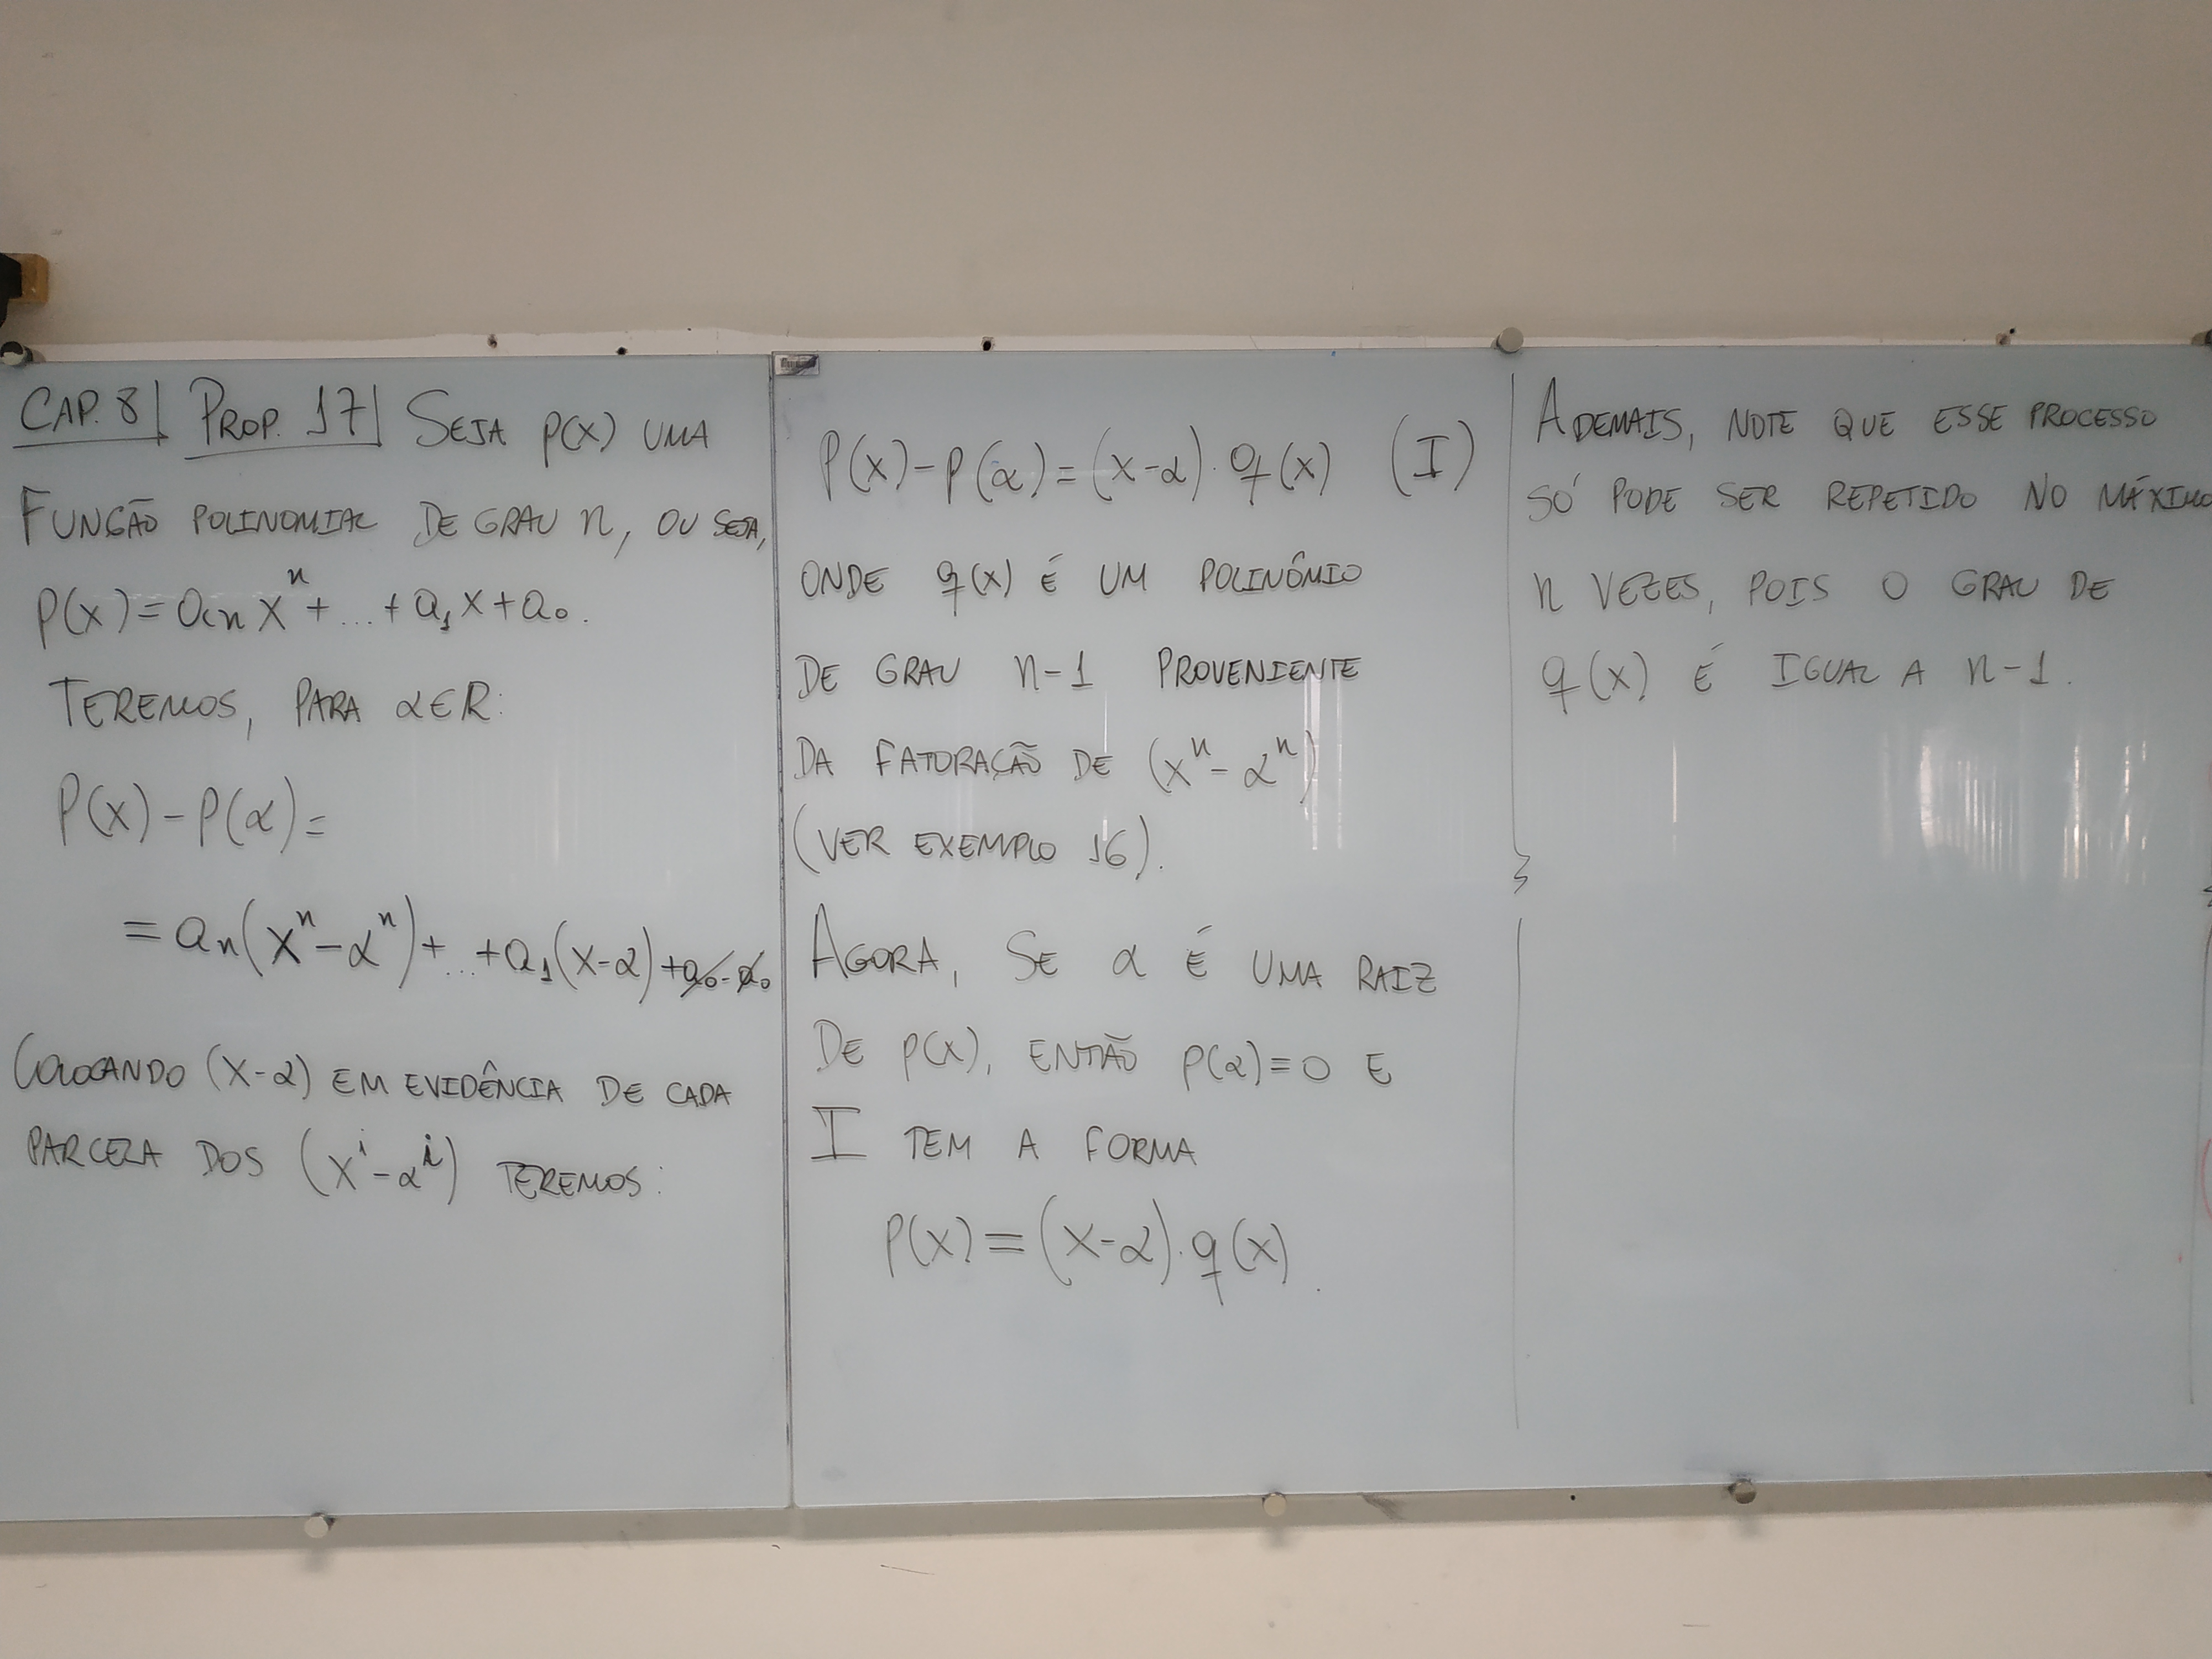 CAP. 8| PROP. 17| SEJA p(x) UMA
FUNÇÃO POLINOMIAL DE GRAU n, OU SEJA,
p(x) = aₙxⁿ + ... + a₁x + a₀.
TEREMOS, PARA α∈R:
p(x) - p(α) =
= aₙ(xⁿ - αⁿ) + ... + a₁(x-α) + a₀ - a₀
COLOCANDO (x-α) EM EVIDÊNCIA DE CADA
PARCELA DOS (xⁱ - αⁱ) TEREMOS:
p(x) - p(α) = (x-α)·q(x) (I)
ONDE q(x) É UM POLINÔMIO
DE GRAU n-1 PROVENIENTE
DA FATORAÇÃO DE (xⁿ - αⁿ)
(VER EXEMPLO 16).
AGORA, SE α É UMA RAIZ
DE p(x), ENTÃO p(α)=0 E
I TEM A FORMA
p(x) = (x-α)·q(x).
ADEMAIS, NOTE QUE ESSE PROCESSO
SÓ PODE SER REPETIDO NO MÁXIMO
n VEZES, POIS O GRAU DE
q(x) É IGUAL A n-1.